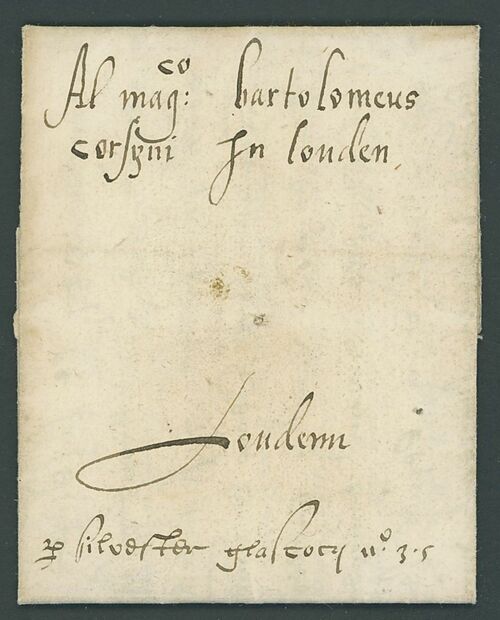 Al mag:co bartolomeus
corsyni In louden
Loudenn
p silvester glascock nº 3·5